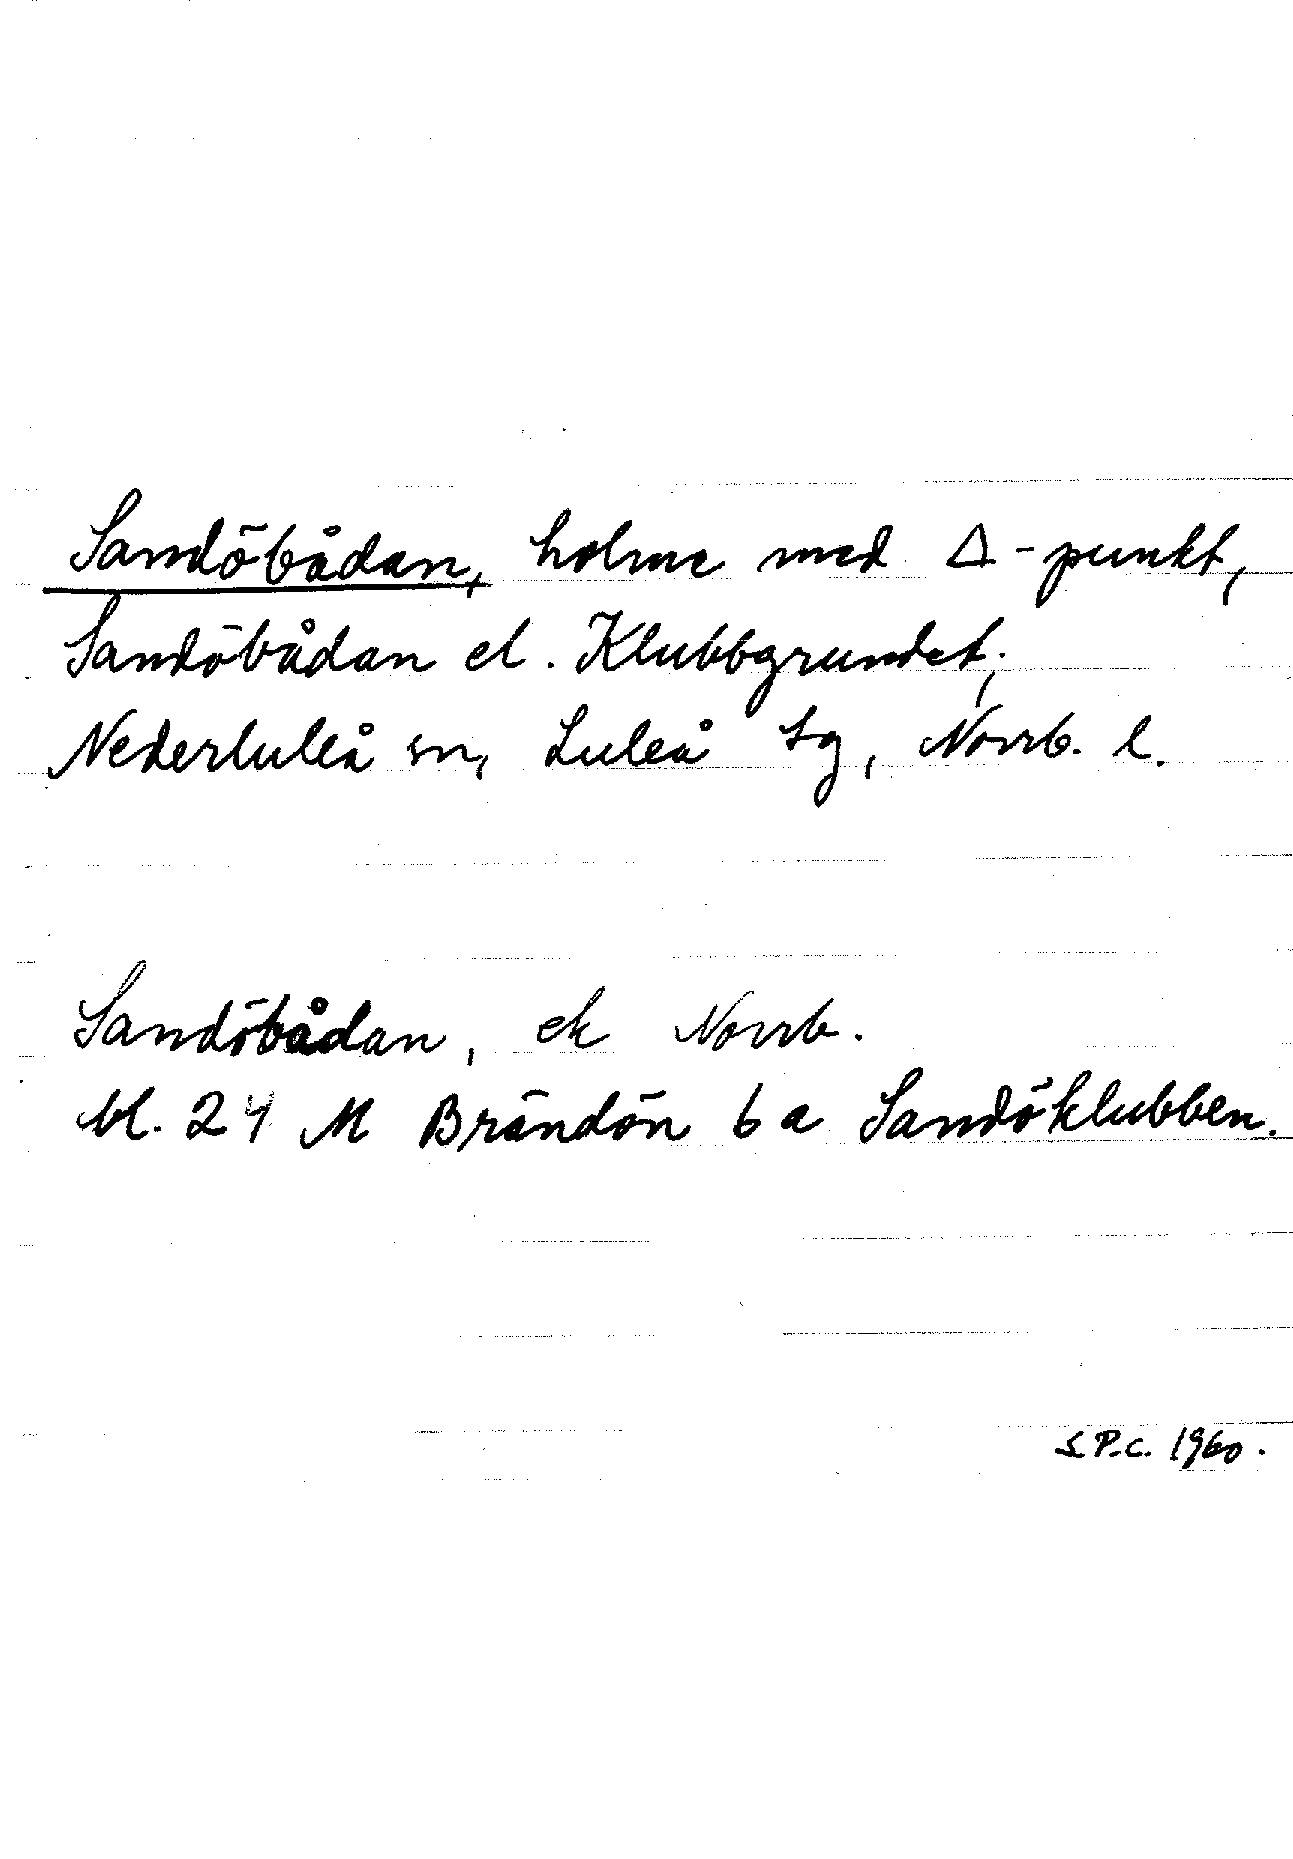 Sandöbådan, holme med Δ-punkt,
Sandöbådan el. Klubbgrundet,
Nederluleå sn, Luleå tg, Norrb. l.
Sandöbådan, ek Norrb.
bl. 24 M Brändön 6 a Sandöklubben.
S.P.C. 1960.